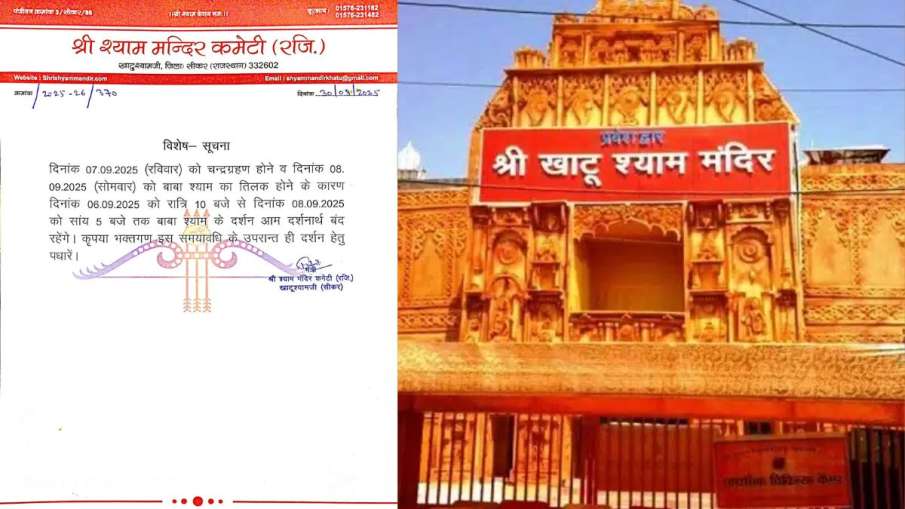 पंजीयन क्रमांक 3/सीकर/86
।।श्री श्याम देवाय नमः।।
दूरभाष :
01576-231182
01576-231482
श्री श्याम मन्दिर कमेटी (रजि.)
खाटूश्यामजी, जिलाः सीकर (राजस्थान) 332602
Website : Shrishyammandir.com
Email : shyammandirkhatu@gmail.com
क्रमांक 2025-26/370
दिनांक 30/08/2025
विशेष– सूचना
दिनांक 07.09.2025 (रविवार) को चन्द्रग्रहण होने व दिनांक 08.
09.2025 (सोमवार) को बाबा श्याम का तिलक होने के कारण
दिनांक 06.09.2025 को रात्रि 10 बजे से दिनांक 08.09.2025
को सांय 5 बजे तक बाबा श्याम के दर्शन आम दर्शनार्थ बंद
रहेंगे। कृपया भक्तगण इस समयावधि के उपरान्त ही दर्शन हेतु
पधारें।
श्री श्याम मंदिर कमेटी (रजि.)
खाटूश्यामजी (सीकर)
प्रवेश द्वार
श्री खाटू श्याम मंदिर